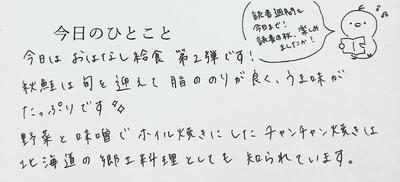 今日のひとこと
読書週間も
今日まで!
読書の秋、楽しめ
ましたか?
今日は おはなし給食 第2弾です!
秋鮭は旬を迎えて脂ののりが良く、うま味が
たっぷりです
野菜と味噌でホイル焼きにしたチャンチャン焼きは
北海道の郷土料理としても知られています。